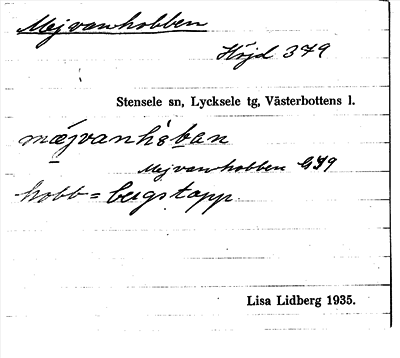 Mejvanhobben
Höjd 379
Stensele sn, Lycksele tg, Västerbottens l.
mæjvanhåban
Mejvanhobben G79
hobb = bergstopp.
Lisa Lidberg 1935.